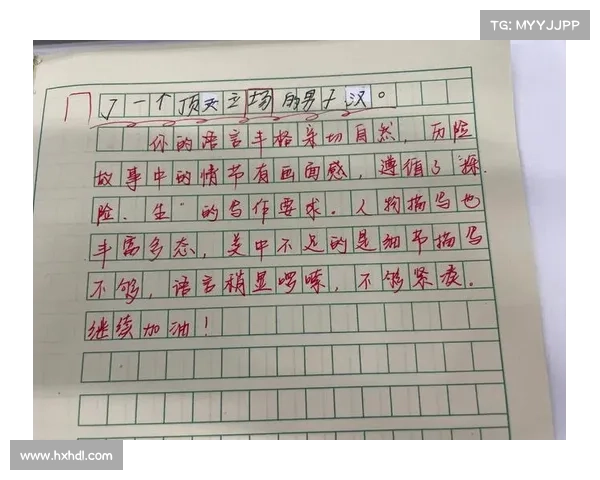 TG: MYYJJPP
了一个顶天立场的男子汉。
你的语言丰格亲切自然，历险
故事中的情节有画面感，遵循了"探
险、生"的写作要求。人物描写也
丰富多态，美中不足的是细节描写
不够，语言稍显啰嗦，不够紧凑。
继续加油！
www.hxhdl.com